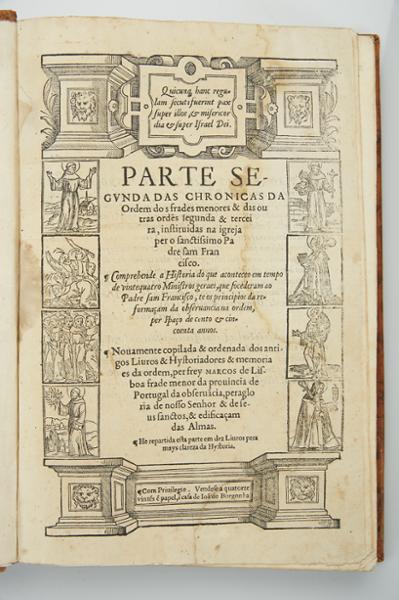 Quicunq; hanc regu-
lam secuti fuerint pax
super illos, & misericor
dia & super Israel Dei.
PARTE SE-
GVNDA DAS CHRONICAS DA
Ordem dos frades menores & das ou
tras ordẽs segunda & tercei
ra, instituidas na igreja
per o sanctissimo Pa
dre sam Fran
cisco.
¶ Comprehende a Historia do que aconteceo em tempo
de vintequatro Ministros geraes, que socederam ao
Padre sam Francisco, te os principios da re
formaçam da obseruancia na ordem,
per spaço de cento & cin-
coenta annos.
¶ Nouamente copilada & ordenada dos anti-
gos Liuros & Hystoriadores & memoria
es da ordem, per frey MARCOS de Lis-
boa frade menor da prouincia de
Portugal da obseruãcia, pera glo
ria de nosso Senhor & de se
us sanctos, & edificaçam
das Almas.
¶ He repartida esta parte em dez Liuros pera
mays clareza da Hystoria.
¶ Com Priuilegio. Vendese a quatorze
vintẽs ẽ papel, ẽ casa de Ioão de Borgonha